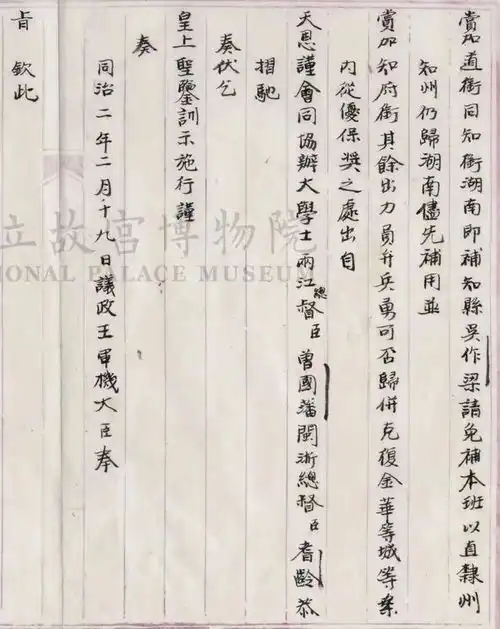 賞加道銜同知銜湖南即補知縣吳作梁請免補本班以直隸州
知州仍歸湖南儘先補用並
賞加知府銜其餘出力員弁兵勇可否歸併克復金華等城等案
內從優保獎之處出自
天恩謹會同協辦大學士兩江總督臣曾國藩閩浙總督臣耆齡恭
摺馳
奏伏乞
皇上聖鑒訓示施行謹
奏
同治二年二月十九日議政王軍機大臣奉
旨欽此
立故宮博物院
IONAL PALACE MUSEUM